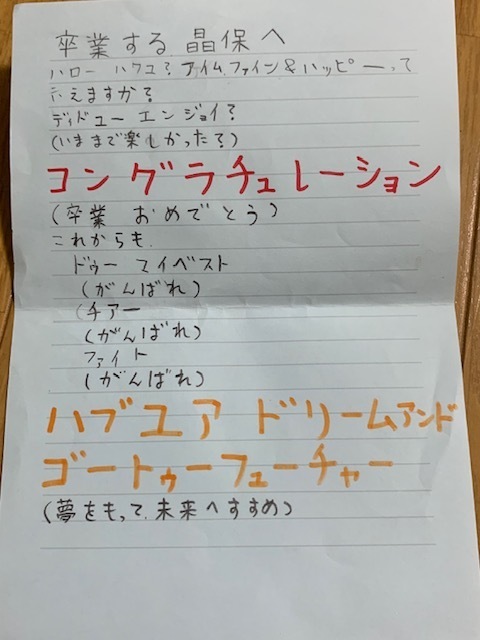 卒業する晶保へ
ハローハワユ？アイムファイン&ハッピーって
言えますか？
ディドユーエンジョイ？
(いままで楽しかった？)
コングラチュレーション
(卒業 おめでとう)
これからも
ドゥー マイベスト
(がんばれ)
(チアー
(がんばれ)
ファイト
(がんばれ)
ハブユア ドリームアンド
ゴートゥーフューチャー
(夢をもって未来へすすめ)